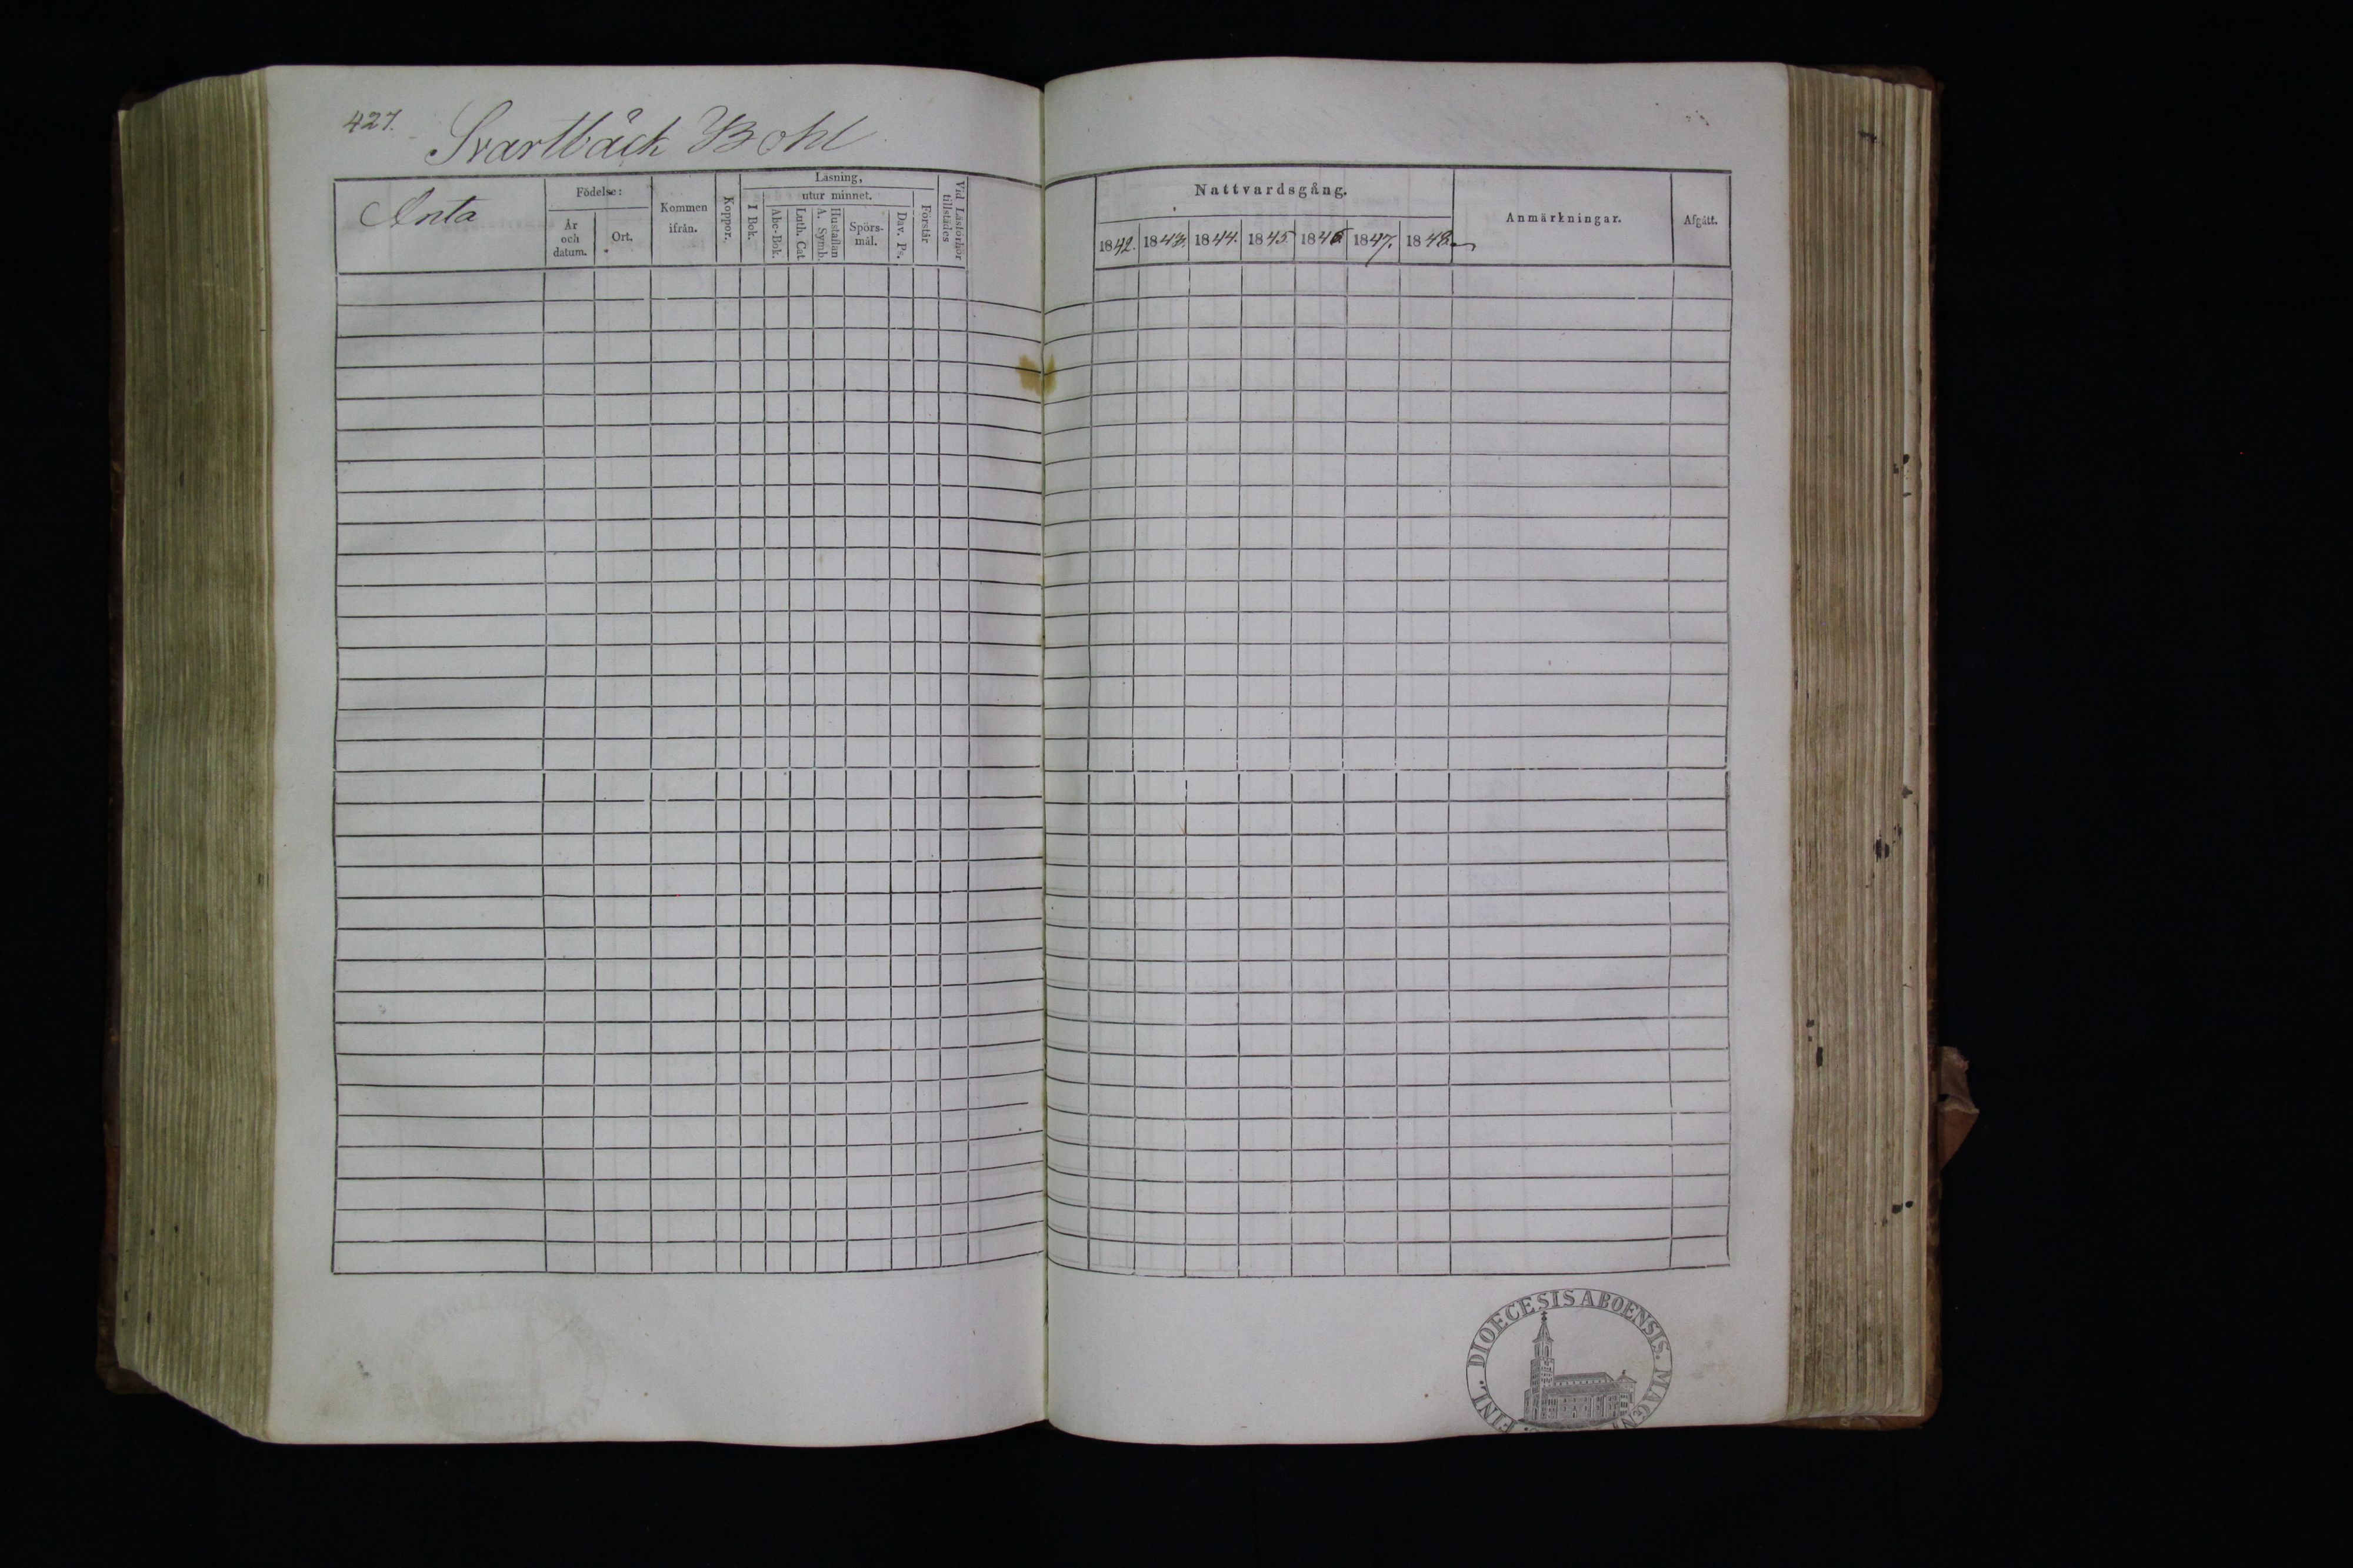 427.
Svartbäck Bohl
Anta
Födelse:
År och datum.
Ort.
Kommen ifrån.
Koppor.
Läsning,
I Bok.
utur minnet.
Abc-Bok.
Luth. Cat
Hustaflan A. Symb.
Spörs- mål.
Dav. Ps.
Förstår
Vid Läsförhör tillstädes
Nattvardsgång.
1842. 1843. 1844. 1845. 1846 1847. 1848.
Anmärkningar.
Afgått.
FINL. DIOECESIS ABOENSIS. MAGNI